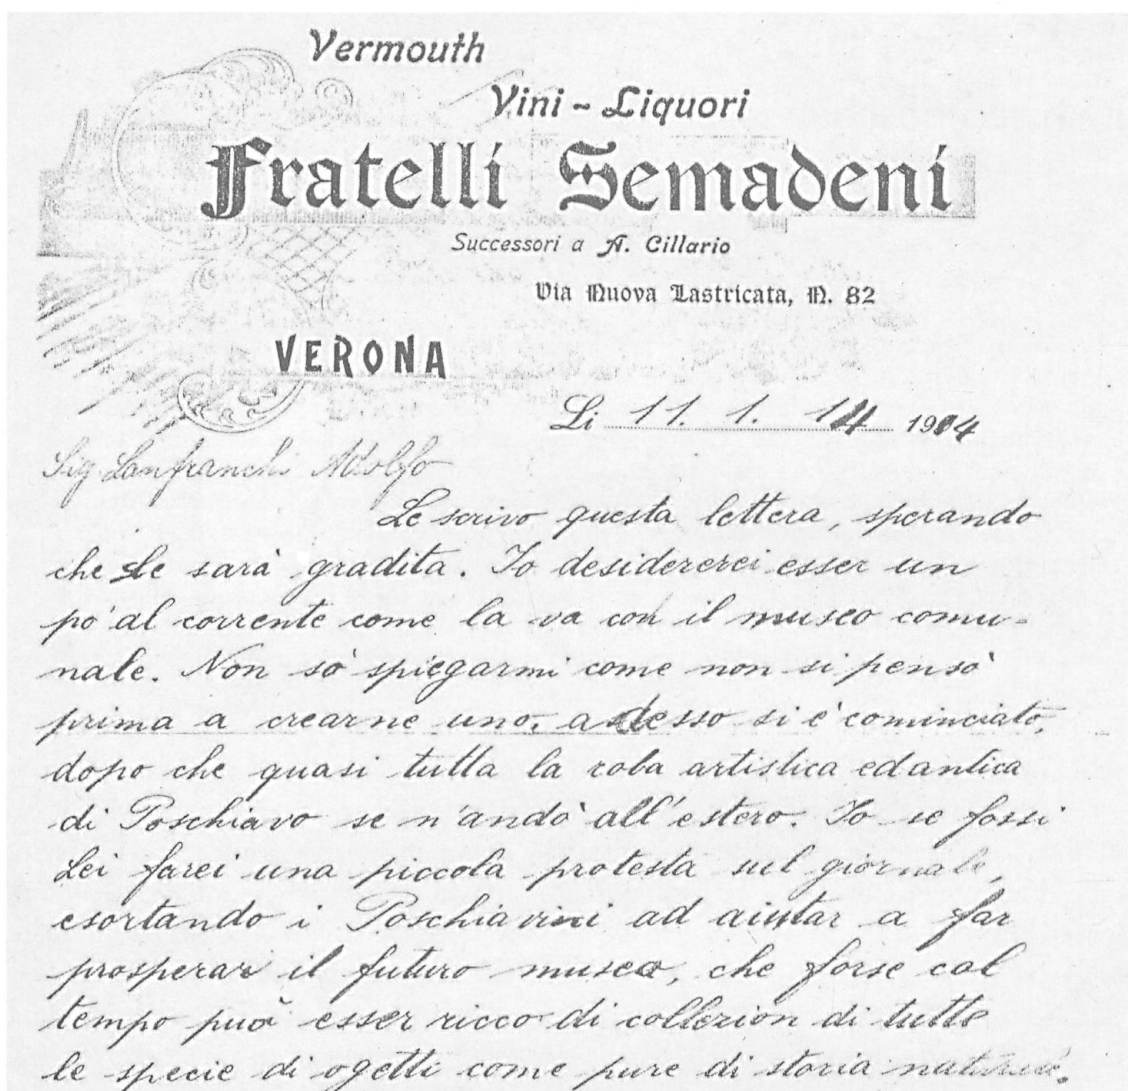 Vermouth
Vini - Liquori
Fratelli Semadeni
Successori a A. Cillario
Via Nuova Lastricata, N. 82
VERONA
Li 11. 1. 14 1914
Sig. Lanfranchi Adolfo
Le scrivo questa lettera, sperando
che Le sarà gradita. Io desidererei esser un
pò al corrente come la va con il museo comu-
nale. Non sò spiegarmi come non si pensò
prima a crearne uno, adesso si è cominciato,
dopo che quasi tutta la roba artistica ed antica
di Poschiavo se n'andò all'estero. Io se fossi
Lei farei una piccola protesta sul giornale,
esortando i Poschiavini ad aiutar a far
prosperar il futuro museo, che forse col
tempo può esser ricco di collezion di tutte
le specie di ogetti come pure di storia naturale.